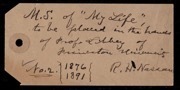 M.S. of "My Life"
to be placed in the hands
of Prof. Libbey of
Princeton University
No. 2. { 1874
1891
R. H. Nassau